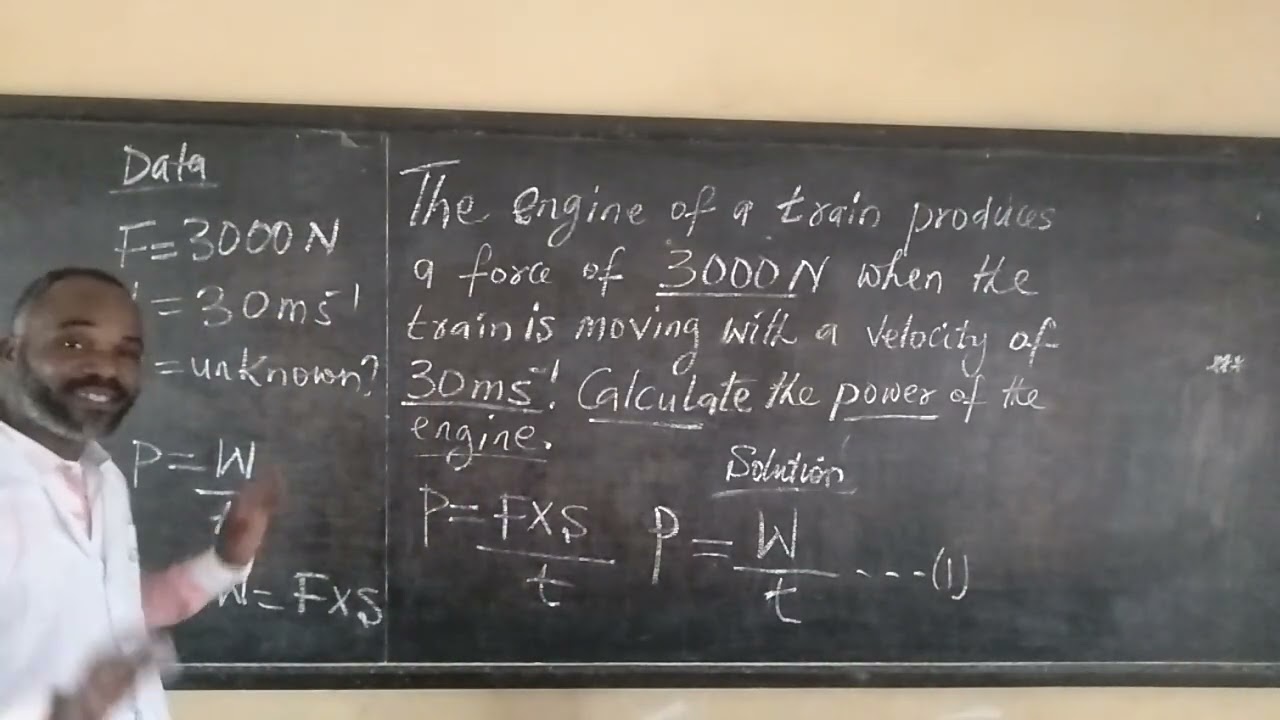 Data
F = 3000 N
= 30 ms⁻¹
= unknown?
P = W
W = F x S
The engine of a train produces
a force of 3000 N when the
train is moving with a velocity of
30 ms⁻¹. Calculate the power of the
engine.
Solution
P = F x S / t P = W / t ----(1)